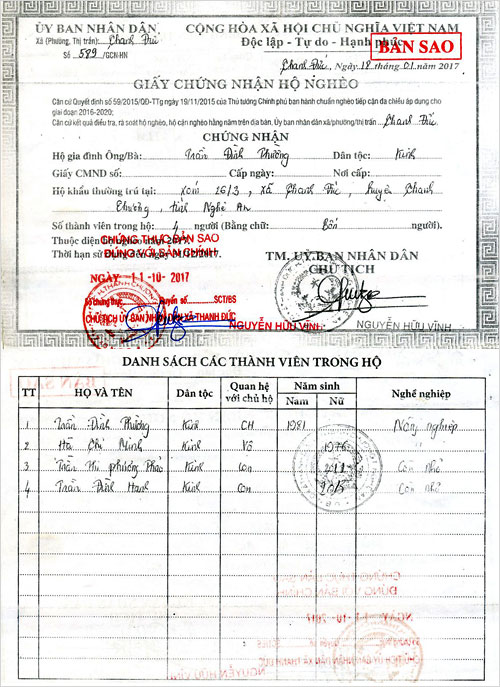 ỦY BAN NHÂN DÂN
Xã (Phường, Thị trấn): Thanh Đức
Số 589/GCN-HN
CỘNG HÒA XÃ HỘI CHỦ NGHĨA VIỆT NAM
Độc lập - Tự do - Hạnh phúc
BẢN SAO
Thanh Đức, Ngày 18 tháng 01 năm 2017
GIẤY CHỨNG NHẬN HỘ NGHÈO
Căn cứ Quyết định số 59/2015/QĐ-TTg ngày 19/11/2015 của Thủ tướng Chính phủ ban hành chuẩn nghèo tiếp cận đa chiều áp dụng cho
giai đoạn 2016-2020;
Căn cứ kết quả điều tra, rà soát hộ nghèo, hộ cận nghèo hằng năm trên địa bàn, Ủy ban nhân dân xã/phường/thị trấn Thanh Đức
CHỨNG NHẬN
Hộ gia đình Ông/Bà: Trần Đình Phường Dân tộc: Kinh
Giấy CMND số: Cấp ngày: Nơi cấp:
Hộ khẩu thường trú tại: xóm 16/3, xã Thanh Đức, huyện Thanh
Chương, tỉnh Nghệ An
Số thành viên trong hộ: 4 người (Bằng chữ: Bốn người).
Thuộc diện
Thời hạn sử dụng
CHỨNG THỰC BẢN SAO
ĐÚNG VỚI BẢN CHÍNH
NGÀY 11-10-2017
Số chứng thực Quyển số SCT/BS
CHỦ TỊCH ỦY BAN NHÂN DÂN XÃ THANH ĐỨC
NGUYỄN HỮU VĨNH
TM. ỦY BAN NHÂN DÂN
CHỦ TỊCH
NGUYỄN HỮU VĨNH
DANH SÁCH CÁC THÀNH VIÊN TRONG HỘ
TT HỌ VÀ TÊN Dân tộc Quan hệ với chủ hộ Năm sinh Nam Nữ Nghề nghiệp
1 Trần Đình Phường Kinh CH 1981 Nông nghiệp
2 Kinh Vợ 1976
3 Trần Thị Phương Thảo Kinh Con Còn nhỏ
4 Trần Đình Mạnh Kinh Con Còn nhỏ